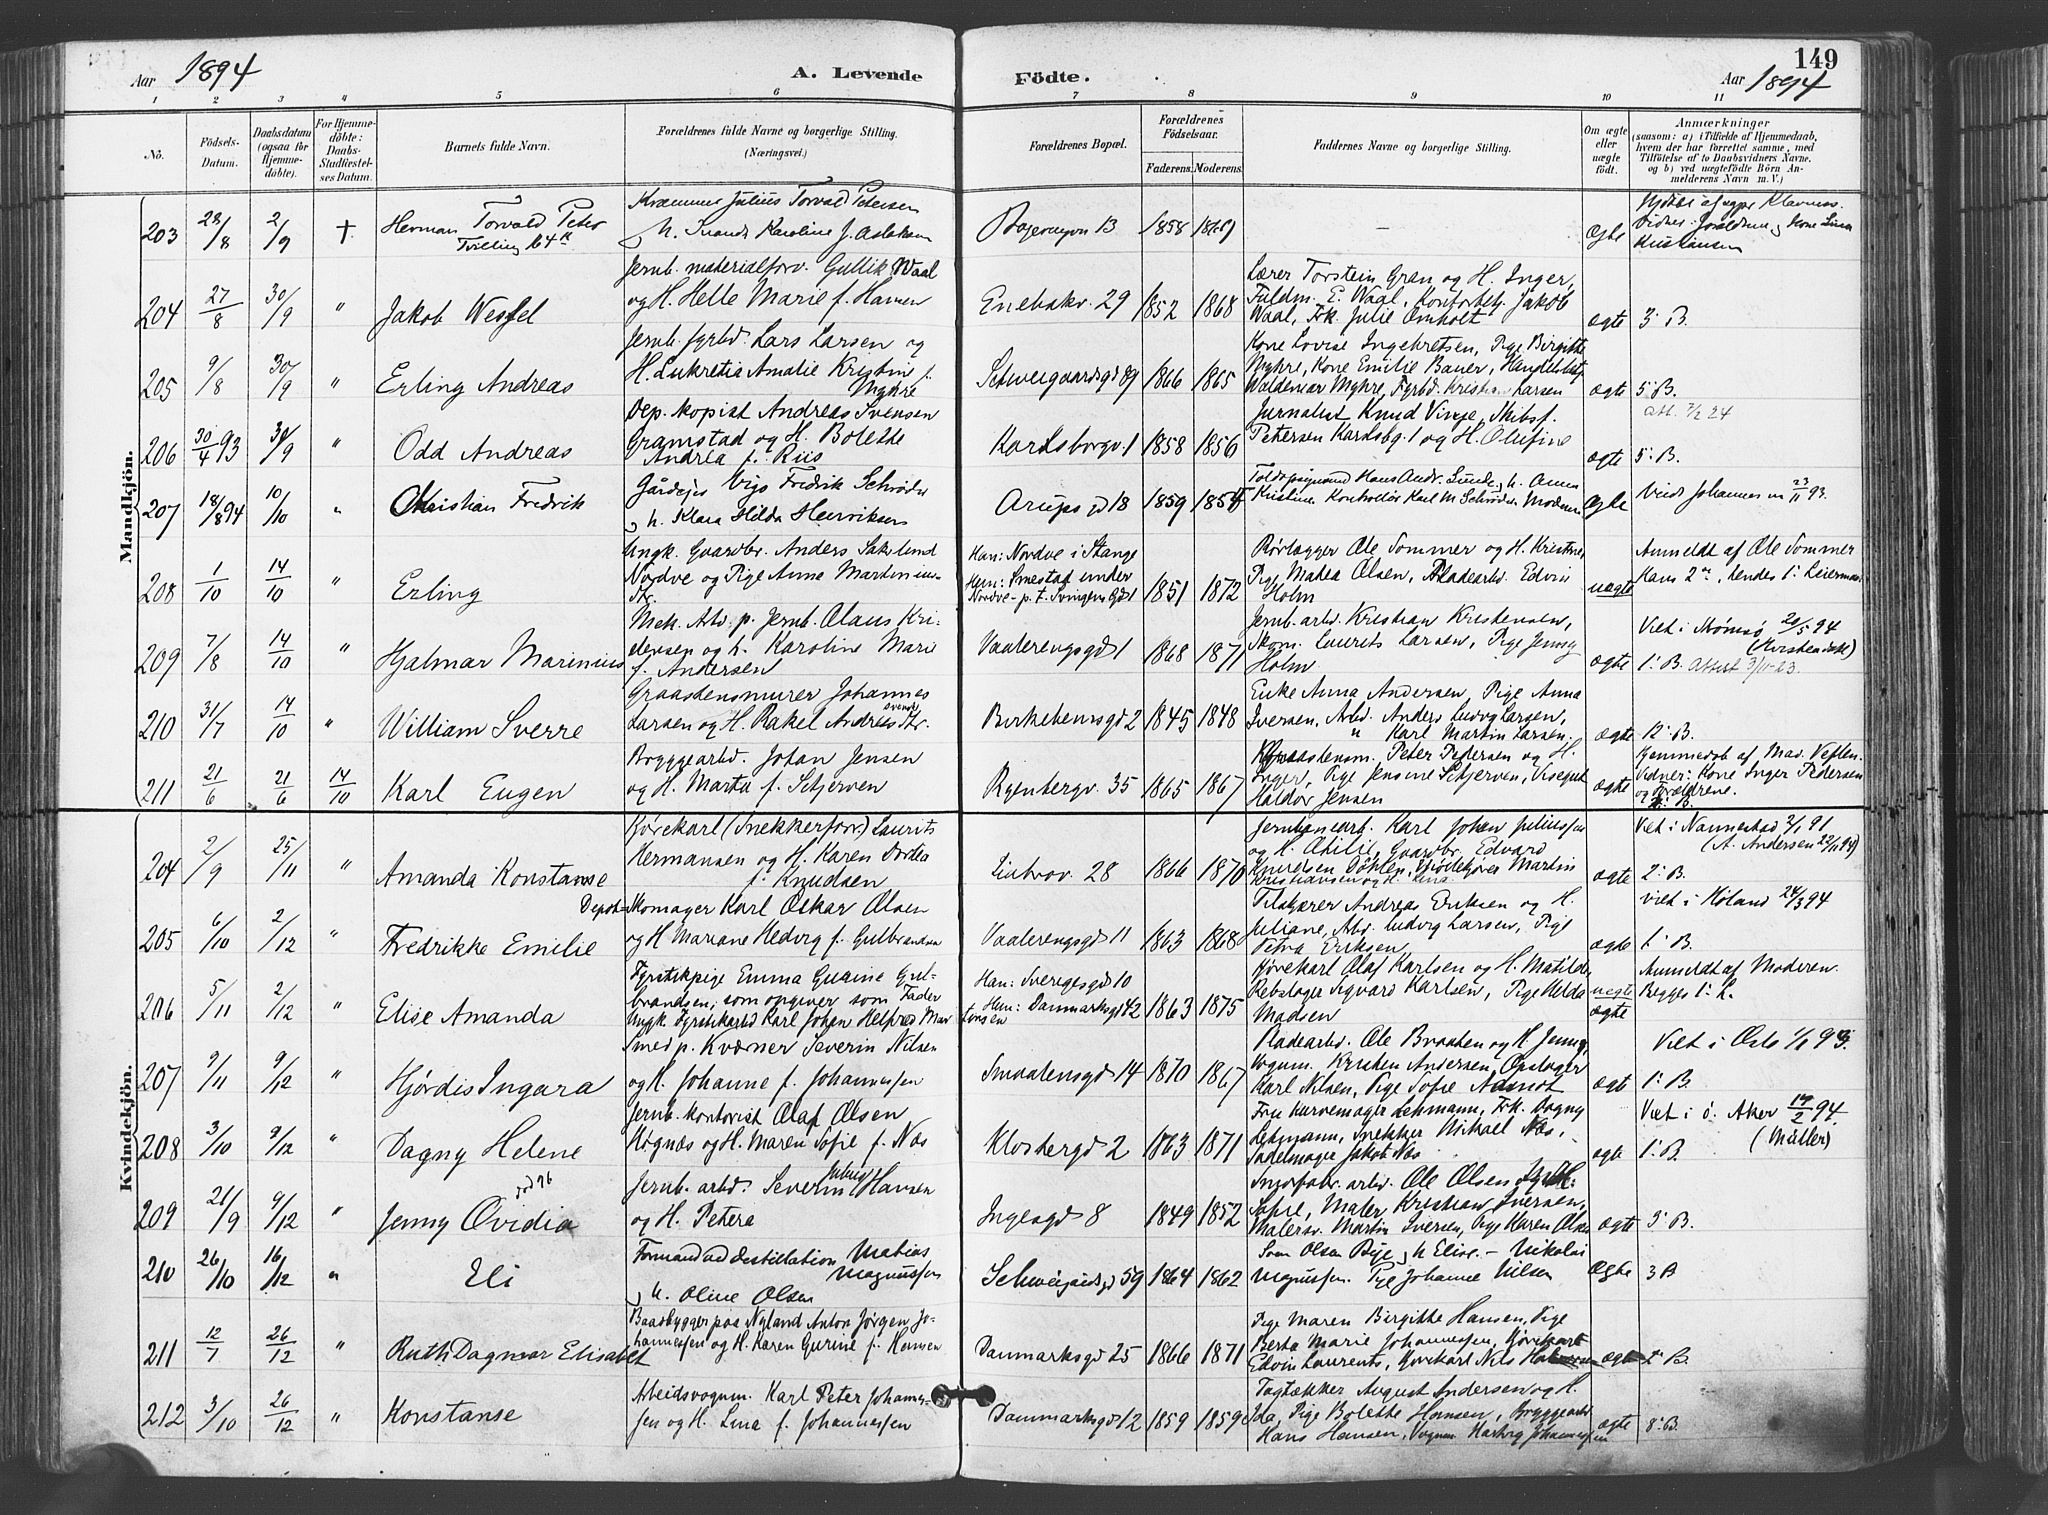 149
Aar 1894
A. Levende Fødte.
Aar 1894
1 2 3 4 5 6 7 8 9 10 11
No.
Fødsels-Datum.
Daabsdatum (ogsaa for Hjemmedøbte).
For Hjemmedøbte: Daabs-Stadfæstelses Datum.
Barnets fulde Navn.
Forældrenes fulde Navne og borgerlige Stilling. (Næringsvei.)
Forældrenes Bopæl.
Forældrenes Fødselsaar.
Faderens. Moderens.
Faddernes Navne og borgerlige Stilling.
Om ægte eller uægte født.
Anmærkninger (saasom: a) i Tilfælde af Hjemmedaab, hvem der har forrettet samme, med Tilføielse af to Daabsvidners Navne. og b) ved uægtefødte Børn Anmelderens Navn m. V.)
Mandkjøn.
203 28/8 2/9 † Herman Torvald Peter
Tvilling
Kræmmer Julius Torvald Petersen
Karoline f. Aslaksen
1858
ægte
204 27/8 30/9 " Jakob Wessel
Jernb. materialforv. Gullik Waal
og H. Helle Marie f. Hansen
Enebakv. 29 1852 1868
Lærer Torstein Gran og H. Inger,
Fuldm. E. Waal, Kontorbetj. Jakob
Waal, Frk. Julie Omholt
ægte 3: B.
205 9/8 30/9 " Erling Andreas
Jernb. fyrbd. Lars Larsen og
H. Lukretia Amalie Kristin f.
Myhre
Schweigaardsgd 89 1866 1865
Kone Lovise Ingebretsen, Pige Birgitte
Myhre, Kone Emilie Bauer, Handelsbetj.
Valdemar Myhre, Fyrbd. Kristian Larsen
ægte 5: B.
Att. 7/2 24
206 30/4 93 30/9 " Odd Andreas
Dep. kopist Andreas Svensen
Gramstad og H. Bolette
Andrea f. Riis
Karlsborgv. 1 1858 1856
Jurnalist Knud Vinje, Skibsf.
Petersen Karlsbg. 1 og H. Olufine
ægte 5: B.
207 18/8 94 10/10 " Christian Fredrik
Gårdejer Vigo Fredrik Schrøder
Klara Hilda Henriksen
Arups gd 18 1859
Kristine Kontrollør Karl M Schrøder Moderen
Ægte
Viede Johannes m 23/11 93.
208 1/10 14/10 " Erling
Ungk. Gaardbr. Anders Sakelund
Nordve og Pige Anne Martinius-
dtr.
Han: Nordve i Stange
Hun: Smestad under
Nordve - p. t. Svingens Gd 1
1851 1872
Rørlægger Ole Sommer og H. Kristine,
Pige Matea Olsen, Pladearbd. Edvin
Holm
uægte
Anmeldt af Ole Sommer
Hans 2den, hendes 1: Leiermaal
209 7/8 14/10 " Hjalmar Marinius
Mek. Arb. p. Jernb. Olaus Kri-
densen og H. Karoline Marie
f. Andersen
Vaalerengsgd 1 1868 1871
Jernb. arb. Kristian Kristensen,
Skom. Laurits Larsen, Pige Jenny
Holm
ægte
Viet i Strømsø 20/5 94
1: B. Attest 3/11-23.
210 31/7 14/10 " William Sverre
Graastensmurer Johannes
Larsen og H. Rakel Andreas dtr.
Birkebeinsgd 2 1845 1848
Enke Anna Andersen, Pige Anna
Iversen, Arbd. Anders Ludvig Larsen,
" Karl Martin Larsen.
ægte 12: B.
211 21/6 21/6 14/10 Karl Eugen
Byggearbd. Johan Jensen
og H. Marta f. Schjerven
Ryenbergv. 35 1865 1867
Graastensm. Peter Pedersen og H.
Inger, Pige Jensine Schjerven, Visergut
Haldor Jensen
ægte
Hjemmedøb af Mad. Veflen.
Vidner: Kone Inger Pedersen
og Forældrene.
Kvindekjøn.
204 2/9 25/11 " Amanda Konstanse
Kjørekarl (Snekkerforv.) Laurits
Hermansen og H. Karen Dortea
f. Knudsen
28 1866 1870
Jernbanearb. Karl Johan Juliussen
og H. Otilie, Gaardbr. Edvard
Knudsen Døhlen, Martin
Kristiansen og H. Lina
ægte
Viet i Nannestad 3/1 91
(A. Andersen 22/11 94)
2: B.
205 6/10 2/12 " Fredrikke Emilie
Depot-Skomager Karl Oskar Olsen
og H Mariane Hedvig f. Gulbrandsen
Vaalerengsgd 11 1863 1868
Filskjærer Andreas Eriksen og H.
Juliane, Arb. Ludvig Larsen, Pige
Petra Eriksen
ægte
viet i Høland 24/3 94
1: B.
206 5/11 2/12 " Elise Amanda
Fyrstikpige Emma Gurine Gul-
brandsen, som opgiver som Fader
Ungk. Fyrstikarbd Karl Johan Helfred Mar
tinsen
Han: Sverigesgd 10
Hun: Danmarksgd 42
1863 1875
Kjørekarl Olaf Karlsen og H. Matilde
Rebslager Sigvard Karlsen, Pige Helda
Madsen
uegte
ægte
Anmeldt af Moderen.
Begges 1: L.
207 9/11 9/12 " Hjørdis Ingara
Smed p. Kværner Severin Nilsen
og H. Johanne f. Johannessen
Smaalensgd 14 1870 1867
Pladearbd. Ole Braaten og H Jenny,
Vognm. Kristen Andersen, Opslager
Karl Nilsen, Pige Sofie Arndt
ægte
Viet i Oslo 1/1 93.
1: B.
208 3/10 9/12 " Dagny Helene
Jernb. kontorist Olaf Olsen
Høgnæs og H. Maren Sofie f. Næs
Klosbergd 2 1863 1871
Fru Kurvemager Lehmann, Frk. Dagny
Lehmann, Snekker Mikael Næs,
Sadelmager Jakob Næs
ægte
Viet i Ø. Aker 17/2 94.
(Müller)
1: B.
209 21/9 9/12 " Jenny Ovidia
død 96
Jernb. arbd. Severin Hansen
og H. Petera
Ingesgd 8 1849 1852
arbd. Ole Olsen
Sofie, Maler Kristian Iversen,
Malersv. Martin Iversen, Pige Karen Olsen
ægte 3: B.
210 26/10 16/12 " Eli
Formand ved Destillation Matias
Magnussen
Oline Olsen
Schweigårdsgd 59 1864 1862
Sven Olsen Bye, H Elise - Nikolai
Magnussen Pige Johanne Nilsen
Ægte 3 B
211 12/7 26/12 " Ruth Dagmar Elisabet
Baadbygger paa Nyland Anton Jørgen Jo-
hannessen og H. Karen Gurine f. Hansen
Danmarksgd 25 1866 1871
Pige Maren Birgitte Hansen, Pige
Berta Marie Johannessen, Kjørekarl
Edvin Laurents, Kjørekarl Nils
ægte 1: B.
212 3/10 26/12 " Konstanse
Arbeidsvognm. Karl Peter Johannes-
sen og H. Lina f. Johannessen
Danmarksgd 12 1859 1859
Tagtækker August Andersen og H.
Ida, Pige Bolette Hansen, Byggearbd
Hans Hansen, Vognm Hartvig Johannessen
ægte 8: B.